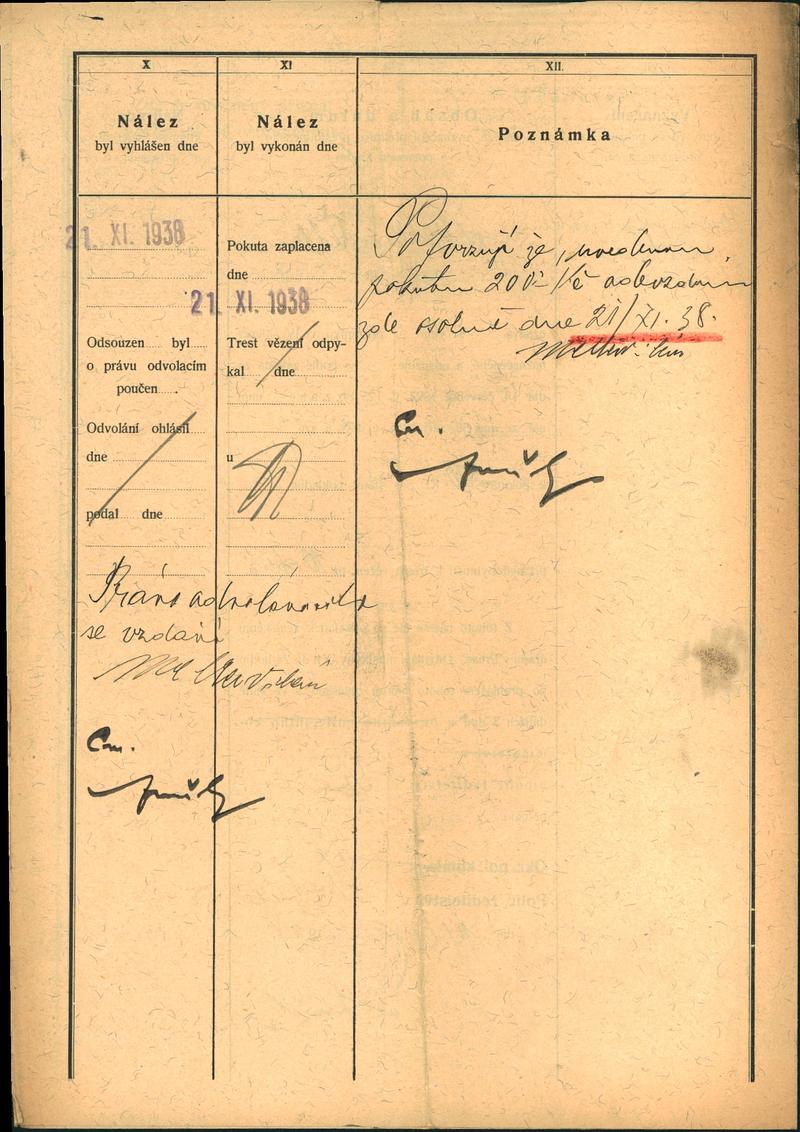 X
XI
XII.
Nález
byl vyhlášen dne
Nález
byl vykonán dne
Poznámka
21. XI. 1938
Odsouzen byl
o právu odvolacím
poučen
Odvolání ohlásil
dne
podal dne
Práva odvolání
se vzdávám
Cm.
Pokuta zaplacena
dne
21. XI. 1938
Trest vězení odpy-
kal dne
u
Potvrzuji že, uvedenou
pokutu 200 Kč odevzdal
zde osobně dne 21/XI. 38.
Cm.